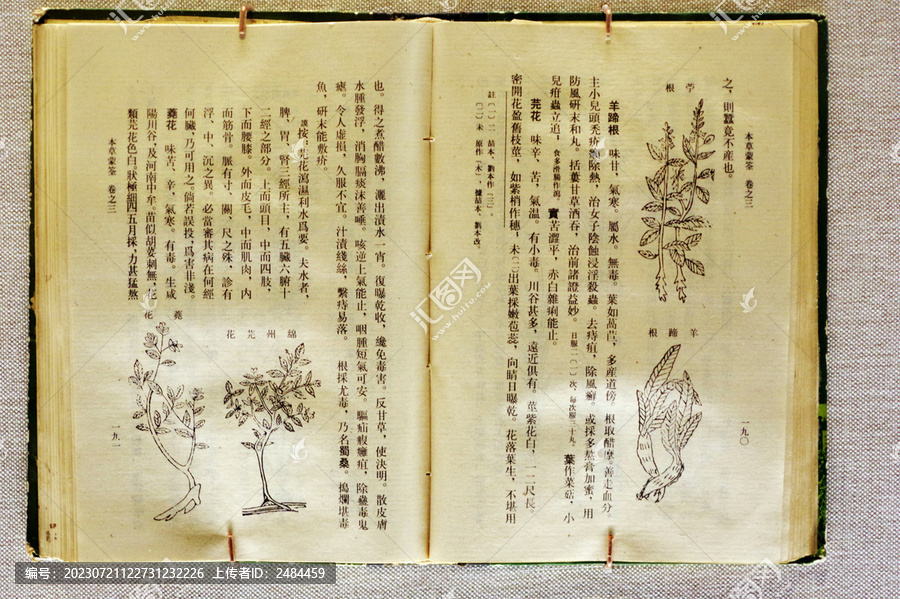 之，則蠶竟不產也。
本草蒙筌 卷之三
一九〇
苧根
羊蹄根
羊蹄根 味甘，氣寒。屬水。無毒。葉如萵苣，多產道傍，根取醋摩，善走血分
主小兒頭禿疥癩除熱，治女子陰蝕浸淫殺蟲。去痔疽，除風癬。或採多熬膏加蜜，用
防風研末和丸。括蔞甘草酒吞，治前諸證益妙。日服二(一)次，每次嚥三十丸。葉作菜菇，小
兒疳蟲立追。食多滑腸作瀉。實苦澀平，赤白雜痢能止。
芫花 味辛、苦，氣溫。有小毒。川谷甚多，遠近俱有。莖紫花白，一二尺長。
密開花盈舊枝莖，如紫梢作穗，未(二)出葉採嫩苞蕊，向晴日曝乾。花落葉生，不堪用
註(一)二
(二)未 原作「木」，據
也。得之煮醋數沸，漉出漬水一宵。復曝乾收，纔免毒害。反甘草，使決明。散皮膚
水腫發浮，消胸膈痰沫善唾。咳逆上氣能止，咽腫短氣可安。驅疝瘕癰疽，除蟲毒鬼
瘧。令人虛損，久服不宜。汁漬綫絲，繫痔易落。 根採尤毒，乃名蜀桑。搗爛堪毒
魚，研末能敷疥。
謨按：芫花瀉濕利水爲要。夫水者，
脾、胃、腎三經所主，有五臟六腑十
二經之部分。上而頭目，中而四肢，
下而腰膝。外而皮毛，中而肌肉，內
而筋骨。脈有寸、關、尺之殊，診有
浮、中、沉之異。必當審其病在何經
何臟，乃可用之。倘若誤投，爲害非淺。
蕘花 味苦、辛，氣寒。有毒。生咸
陽川谷，及河南中牟。苗似胡荽刺無，花
類芫花色白。狀極細，四五月採。力甚猛熬
綿州芫花
蕘花
本草蒙筌 卷之三
一九一
编号：20230721122731232226 上传者ID：2484459